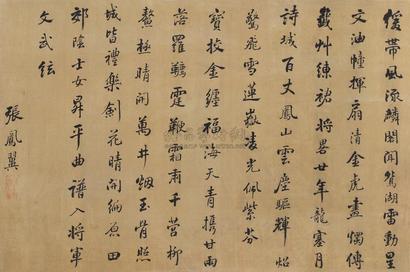 緩帶風流麟閣間鴛湖雷動星
文油幢揮扇清金虎畫燭傳
籌艸練裙將畧廿年龍塞月
詩城百丈鳳山雲塵驅輝焰
驚飛雪蓮嶽凌光佩紫芬
寶校金纏福海天青携甘雨
落羅韉霆歕霜雨千營柳
鰲極晴開萬井烟玉胥照
城皆禮樂劍花晴開緬宛田
郊陰士女昇平曲譜入將軍
文武弦
張鳳翼